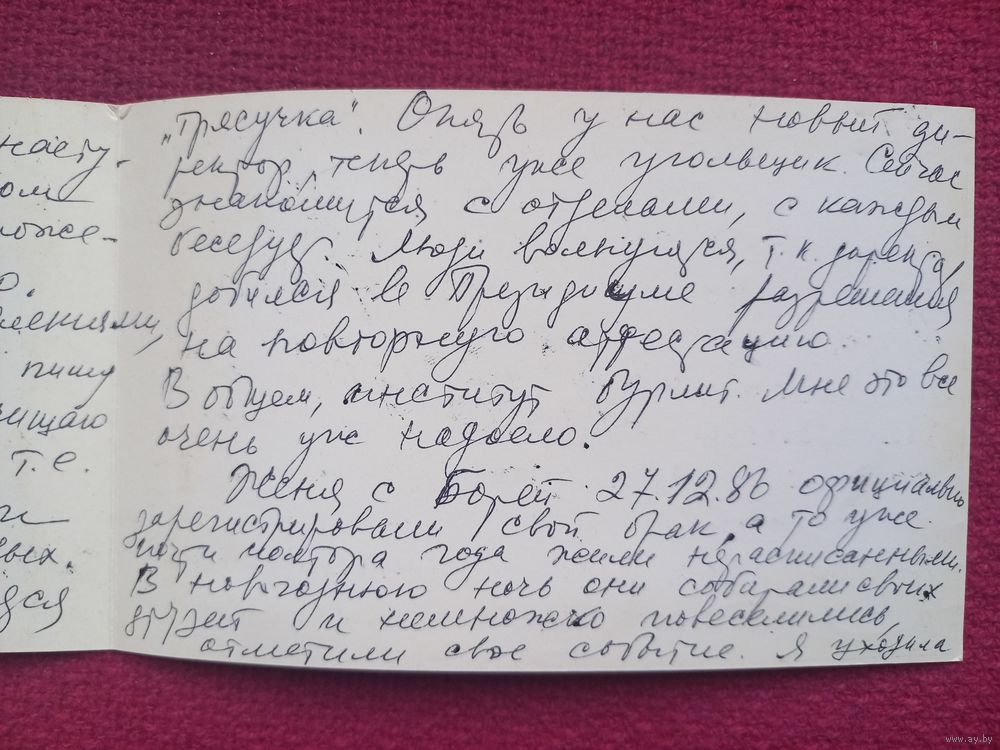 насту-
ом
оже-
о.
лениями,
пишу
чищаю
т.е.
ых.
ядся
„трясучка". Опять у нас новый ди-
ректор, теперь уже угольщик. Сейчас
знакомится с отделами, с каждым
беседует. Люди волнуются, т.к. дирекция
добилась в Президиуме разрешения
на повторную аттестацию.
В общем, институт бурлит. Мне это все
очень уже надоело.
Женя с Борей 27.12.86 официально
зарегистрировали свой брак, а то уже
почти полтора года жили нерасписанными.
В новогоднюю ночь они собирали своих
друзей и немножко повеселились,
отметили свое событие. Я уходила
www.ay.by